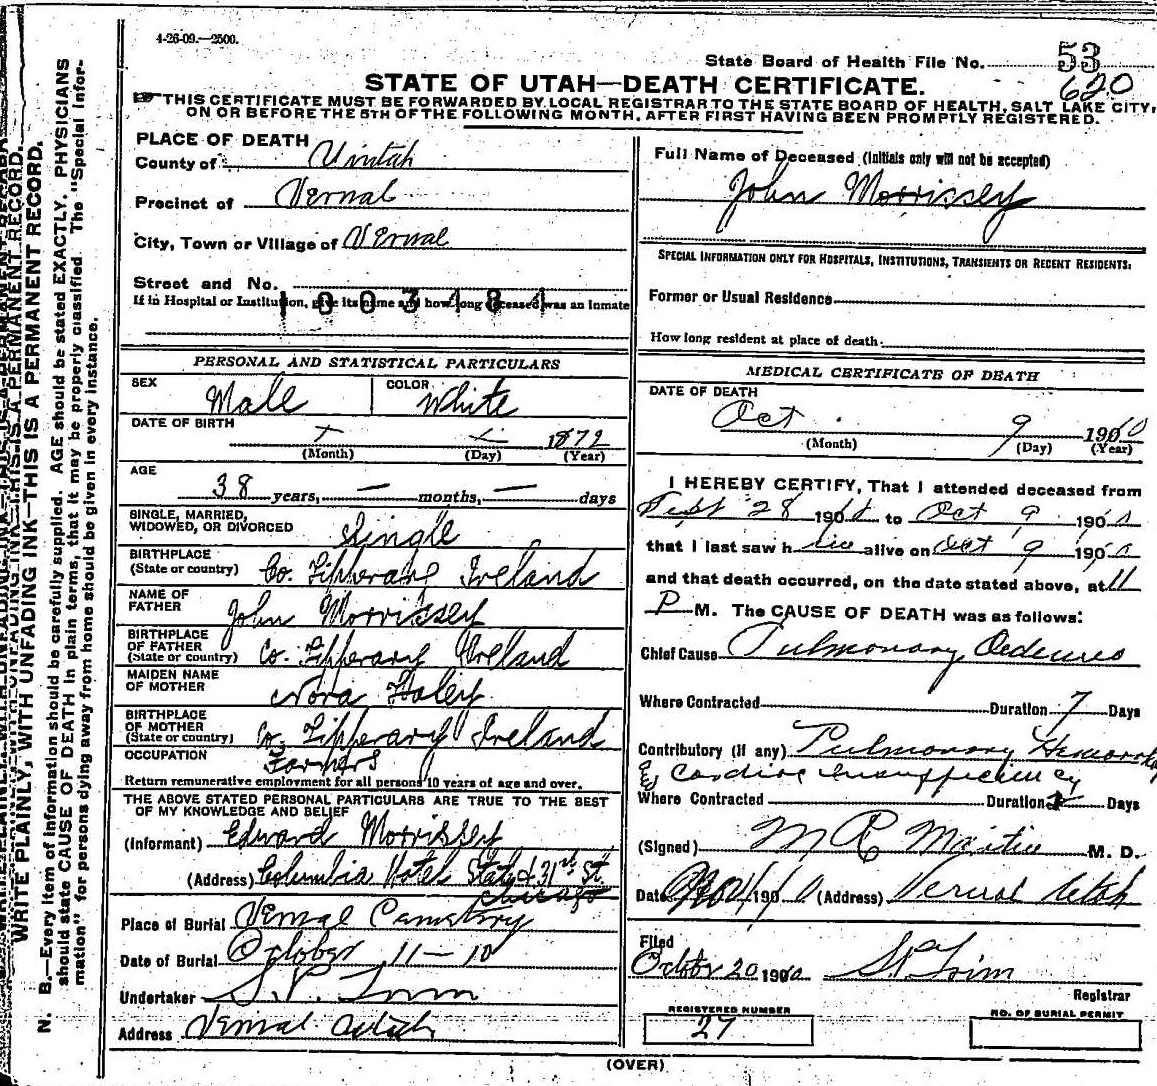 4-26-09.—2500.
State Board of Health File No. 53
620
STATE OF UTAH—DEATH CERTIFICATE.
THIS CERTIFICATE MUST BE FORWARDED BY LOCAL REGISTRAR TO THE STATE BOARD OF HEALTH, SALT LAKE CITY,
ON OR BEFORE THE 5TH OF THE FOLLOWING MONTH, AFTER FIRST HAVING BEEN PROMPTLY REGISTERED.
WRITE PLAINLY, WITH UNFADING INK—THIS IS A PERMANENT RECORD.
N. B.—Every item of information should be carefully supplied. AGE should be stated EXACTLY. PHYSICIANS
should state CAUSE OF DEATH in plain terms, that it may be properly classified. The "Special Infor-
mation" for persons dying away from home should be given in every instance.
PLACE OF DEATH
County of Uintah
Precinct of Vernal
City, Town or Village of Vernal
Street and No.
If in Hospital or Institution, give its name and how long deceased was an inmate
1003484
PERSONAL AND STATISTICAL PARTICULARS
SEX Male
COLOR White
DATE OF BIRTH
1872
(Month) (Day) (Year)
AGE
38 years, — months, — days
SINGLE, MARRIED,
WIDOWED, OR DIVORCED Single
BIRTHPLACE
(State or country) Co. Tipperary Ireland
NAME OF
FATHER John Morrissey
BIRTHPLACE
OF FATHER
(State or country) Co. Tipperary Ireland
MAIDEN NAME
OF MOTHER Nora Haley
BIRTHPLACE
OF MOTHER
(State or country) Co. Tipperary Ireland
OCCUPATION Farmers
Return remunerative employment for all persons 10 years of age and over.
THE ABOVE STATED PERSONAL PARTICULARS ARE TRUE TO THE BEST
OF MY KNOWLEDGE AND BELIEF
(Informant) Edward Morrissey
(Address) Columbia Hotel State & 31st St.
Chicago
Place of Burial Vernal Cemetery
Date of Burial October 11—10
Undertaker
Address Vernal Utah
Full Name of Deceased (Initials only will not be accepted)
John Morrissey
SPECIAL INFORMATION ONLY FOR HOSPITALS, INSTITUTIONS, TRANSIENTS OR RECENT RESIDENTS:
Former or Usual Residence
How long resident at place of death.
MEDICAL CERTIFICATE OF DEATH
DATE OF DEATH
Oct 9 1910
(Month) (Day) (Year)
I HEREBY CERTIFY, That I attended deceased from
Sept 28 1910 to Oct 9 1910
that I last saw him alive on Oct 9 1910
and that death occurred, on the date stated above, at 11
P M. The CAUSE OF DEATH was as follows:
Chief Cause Pulmonary Oedema
Where Contracted Duration 7 Days
Contributory (if any) Pulmonary Hemorrhage
& Cardiac insufficiency
Where Contracted Duration Days
(Signed) M. D.
Date 190 (Address) Vernal Utah
Filed
October 20 1910
Registrar
REGISTERED NUMBER
27
NO. OF BURIAL PERMIT
(OVER)